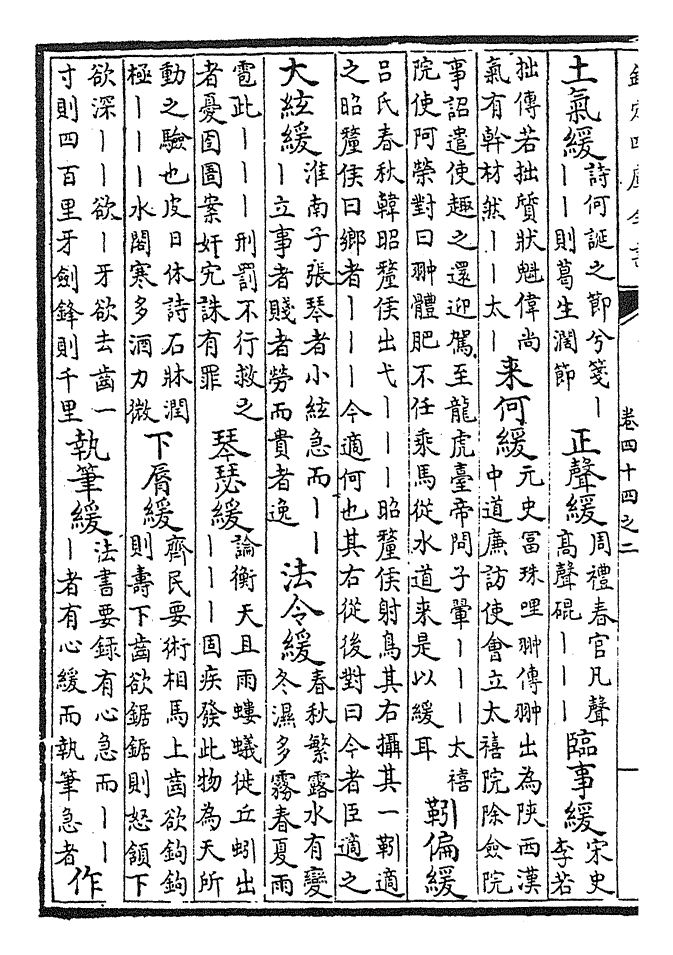 欽定四庫全書 卷四十四之二
土氣緩
詩何誕之節兮箋丨
丨丨則葛生濶節
正聲緩
周禮春官凡聲
高聲硍丨丨丨
臨事緩
宋史
李若
拙傳若拙質狀魁偉尚
氣有幹材然丨丨太丨
来何緩
元史冨珠哩翀傳翀出為陜西漢
中道㢘訪使會立太禧院除僉院
事詔遣使趣之還迎駕至龍虎臺帝問子翬丨丨丨太禧
院使阿榮對曰翀體肥不任乘馬從水道来是以緩耳
靷偏緩
吕氏春秋韓昭釐侯出弋丨丨丨昭釐侯射鳥其右攝其一靷適
之昭釐侯曰鄉者丨丨丨今適何也其右從後對曰今者臣適之
大絃緩
淮南子張琴者小絃急而丨丨
丨立事者賤者勞而貴者逸
法令緩
春秋繁露水有變
冬濕多霧春夏雨
雹此丨丨丨刑罰不行救之
者憂囹圄案奸宄誅有罪
琴瑟緩
論衡天且雨螻蟻徙丘蚓出
丨丨丨固疾發此物為天所
動之驗也皮日休詩石牀潤
極丨丨丨水閣寒多酒力微
下脣緩
齊民要術相馬上齒欲鉤鉤
則壽下齒欲鋸鋸則怒頷下
欲深丨丨欲丨牙欲去齒一
寸則四百里牙劍鋒則千里
執筆緩
法書要録有心急而丨丨
丨者有心緩而執筆急者
作